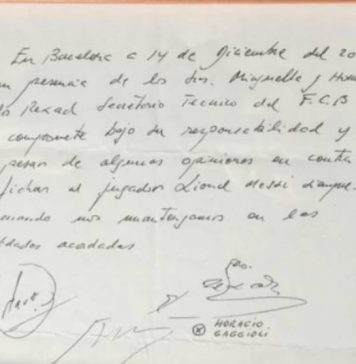 En Barcelona a 14 de Diciembre del 20
presencia de los Srs. Minguella y
Rexach Secretario Tecnico del F.C.B
compromete bajo su responsabilidad y
pesar de algunas opiniones en contra
fichar al jugador Lionel Messi siempre
cuando nos mantengamos en las
acordadas
HORACIO
GAGGIOLI